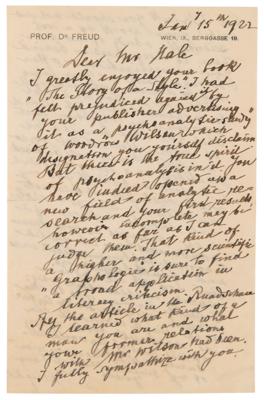 PROF. DR FREUD
WIEN, IX., BERGGASSE 19.
Jan 15th 1922
Dear Mr Hale
I greatly enjoyed your book
"The Story of a Style". I had
felt prejudiced against it by
your publisher advertising
it as a "psychoanalytic study
of Woodrow Wilson" which
designation you yourself disclaim
But there is the true spirit
of psychoanalysis in it. You
have indeed opened up a
new field of analytic re-
search and your first results
however incomplete may be
correct as far as I can
judge them. That kind of
a higher and more scientific
"Graphologie" is sure to find
a broad application in
literary criticism.
By the article in the Rundschau
I learned what kind of a
man you are and what
your former relations
with Mr Wilson had been.
I fully sympathize with you